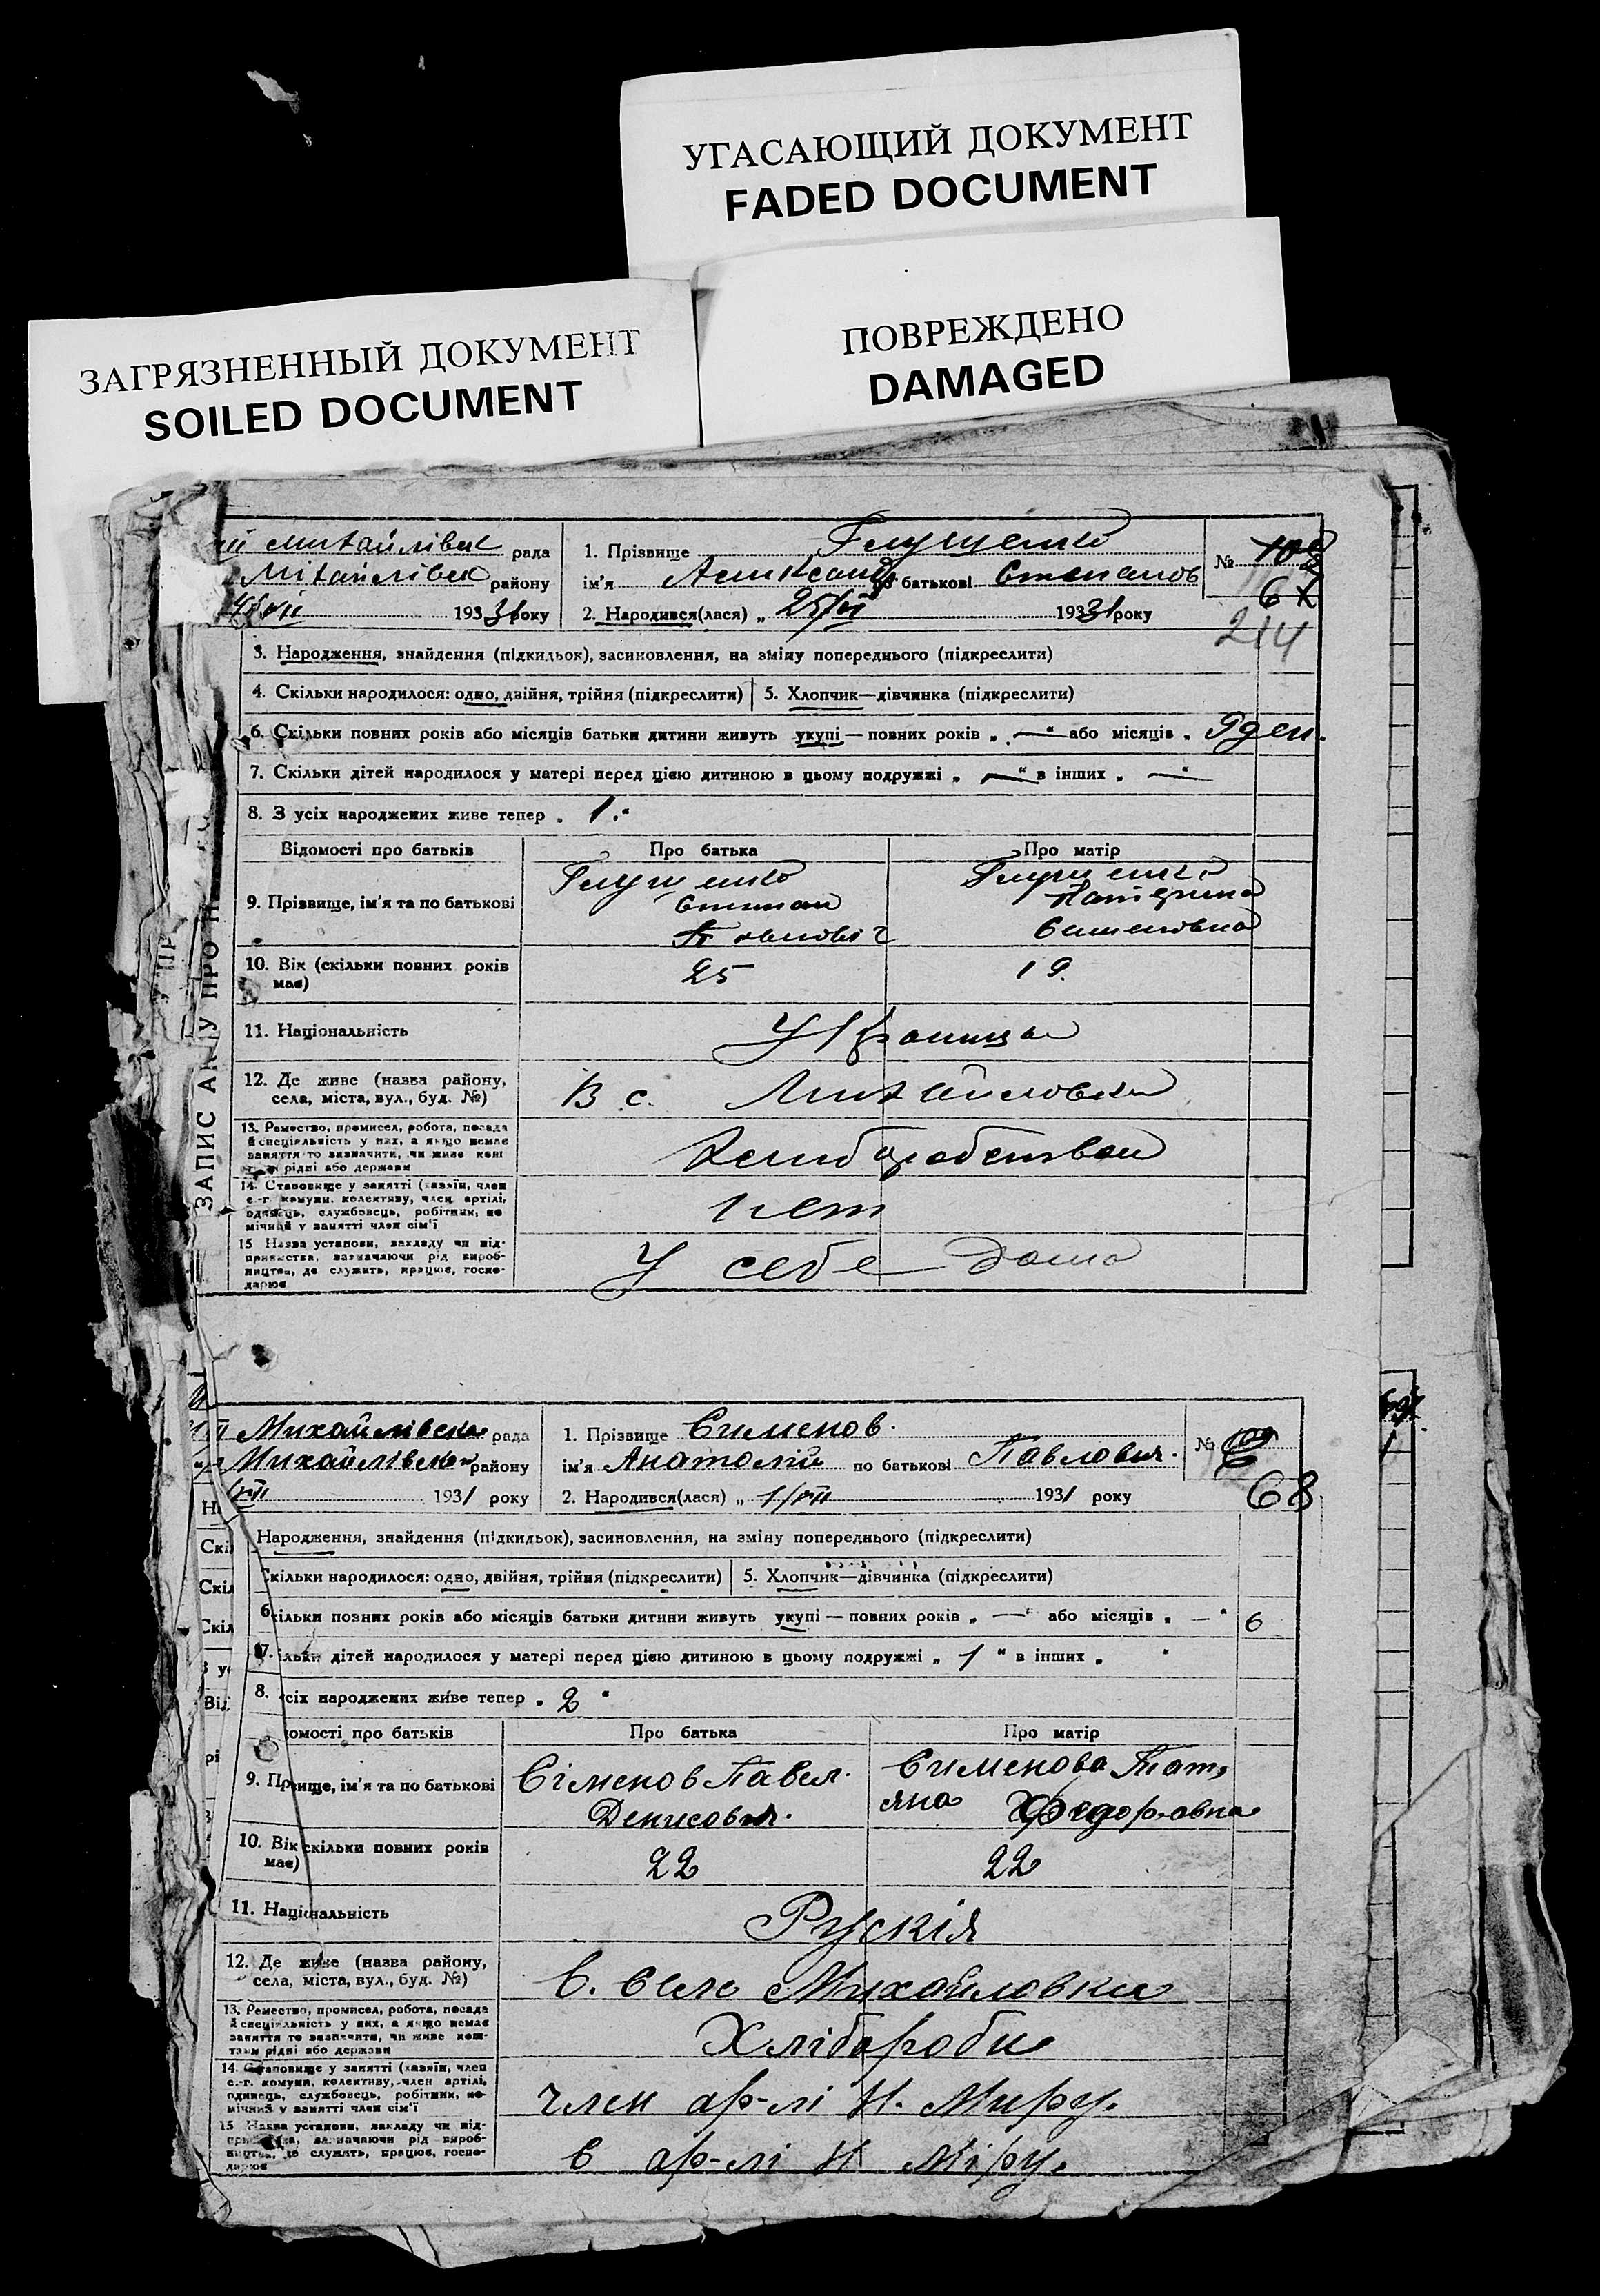 УГАСАЮЩИЙ ДОКУМЕНТ
FADED DOCUMENT
ЗАГРЯЗНЕННЫЙ ДОКУМЕНТ
SOILED DOCUMENT
ПОВРЕЖДЕНО
DAMAGED
рада
району
1931 року
1. Прізвище Глущенко
ім'я Александ по батькові Степанов
2. Народився(лася) „ 25/VII 1931 року
№ 108
67
214
ЗАПИС АКТУ ПРО Н
3. Народження, знайдення (підкидьок), засиновлення, на зміну попереднього (підкреслити)
4. Скільки народилося: одно, двійня, трійня (підкреслити)
5. Хлопчик—дівчинка (підкреслити)
6. Скільки повних років або місяців батьки дитини живуть укупі — повних років „ —“ або місяців „ 9 ден.
7. Скільки дітей народилося у матері перед цією дитиною в цьому подружжі „ —“ в інших „ —“
8. З усіх народжених живе тепер „ 1 “
Відомості про батьків Про батька Про матір
9. Прізвище, ім'я та по батькові
Глущенко
Степан
Павловіч
Глущенко
Катерина
Семеновна
10. Вік (скільки повних років має) 25 19
11. Національність Украинцы
12. Де живе (назва району, села, міста, вул., буд. №)
В с. Михайловки
13. Ремество, промисел, робота, посада й спеціяльність у них, а якщо немає заняття то зазначити, чи живе коштами рідні або держави
14. Становище у занятті (хазяїн, член с.-г. комуни, колективу, член артілі, одинець, службовець, робітник, помічний у занятті член сім'ї
нет
15 Назва установи, закладу чи підприємства, зазначаючи рід виробництва, де служить, працює, господарює
У себе дома
Михайлівска рада
Михайлівской району
VIII 1931 року
1. Прізвище Сименов.
ім'я Анатолій по батькові Павлович.
2. Народився(лася) „ 1/VIII 1931 року
№ 109
68
Народження, знайдення (підкидьок), засиновлення, на зміну попереднього (підкреслити)
Скільки народилося: одно, двійня, трійня (підкреслити)
5. Хлопчик—дівчинка (підкреслити)
6. кільки повних років або місяців батьки дитини живуть укупі — повних років „ —“ або місяців „ —“ 6
7. ільки дітей народилося у матері перед цією дитиною в цьому подружжі „ 1 “ в інших „ “
8. сіх народжених живе тепер „ 2 “
омості про батьків Про батька Про матір
9. Прізвище, ім'я та по батькові
Сіменов Павел.
Денисович.
Сименова Тать
яна Федоровна
10. Вік скільки повних років має) 22 22
11. Національність Рускія
12. Де живе (назва району, села, міста, вул., буд. №)
в. селе Михайловки
13. Ремество, промисел, робота, посада й спеціяльність у них, а якщо немає заняття то зазначити, чи живе коштами рідні або держави
Хлібороби
14. Становище у занятті (хазяїн, член с.-г. комуни, колективу, член артілі, одинець, службовець, робітник, помічний у занятті член сім'ї
член ар-лі Н. Миру.
15 Назва установи, закладу чи підприємства, зазначаючи рід виробництва, де служить, працює, господарює
в ар-лі Н Міру.